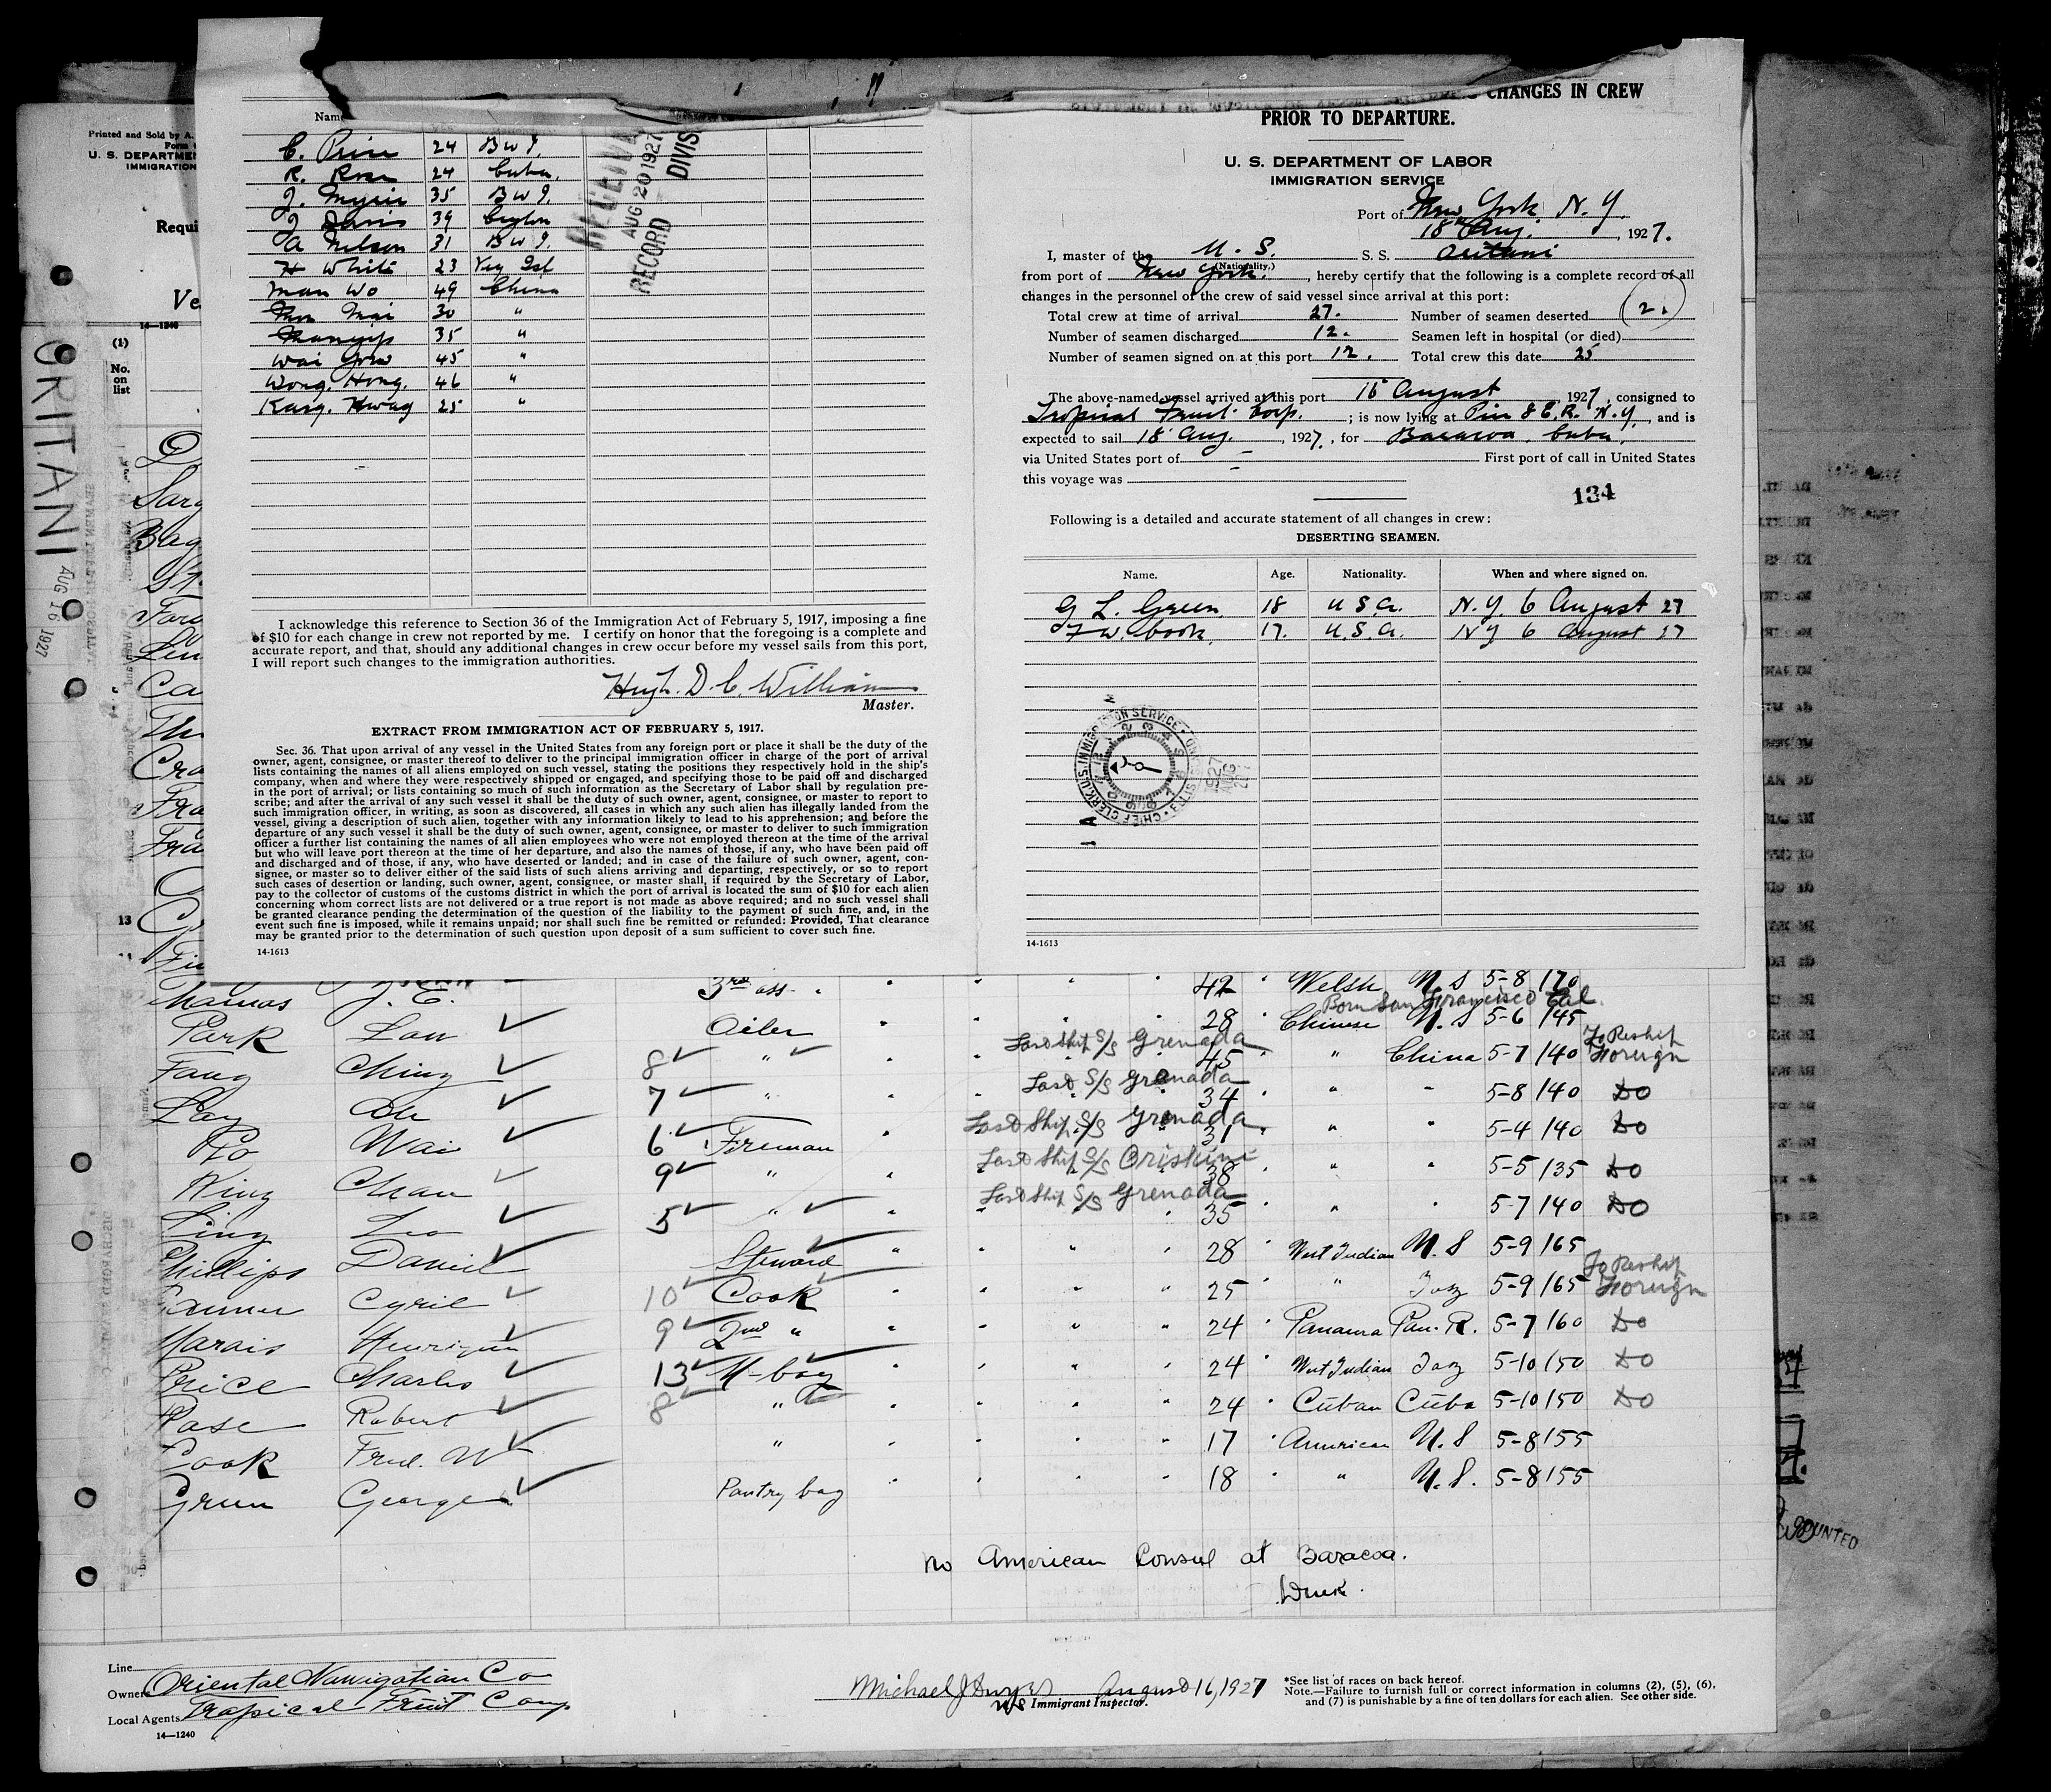 Name
C. Price 24 B W I.
R. Rose 24 Cuba.
J. Myrie 35 B W I.
J Davis 39 Ceylon
A Nelson 31 B W I.
H White 23 Vir Isl
Man Wo 49 China
Mai 30 "
35 "
Wai Yow 45 "
Wong. Hong. 46 "
Kwag 25 "
RECEIVED
AUG 20 1927
RECORD DIVIS
I acknowledge this reference to Section 36 of the Immigration Act of February 5, 1917, imposing a fine
of $10 for each change in crew not reported by me. I certify on honor that the foregoing is a complete and
accurate report, and that, should any additional changes in crew occur before my vessel sails from this port,
I will report such changes to the immigration authorities.
Hugh. D. C. William
Master.
EXTRACT FROM IMMIGRATION ACT OF FEBRUARY 5, 1917.
Sec. 36. That upon arrival of any vessel in the United States from any foreign port or place it shall be the duty of the
owner, agent, consignee, or master thereof to deliver to the principal immigration officer in charge of the port of arrival
lists containing the names of all aliens employed on such vessel, stating the positions they respectively hold in the ship's
company, when and where they were respectively shipped or engaged, and specifying those to be paid off and discharged
in the port of arrival; or lists containing so much of such information as the Secretary of Labor shall by regulation pre-
scribe; and after the arrival of any such vessel it shall be the duty of such owner, agent, consignee, or master to report to
such immigration officer, in writing, as soon as discovered, all cases in which any such alien has illegally landed from the
vessel, giving a description of such alien, together with any information likely to lead to his apprehension; and before the
departure of any such vessel it shall be the duty of such owner, agent, consignee, or master to deliver to such immigration
officer a further list containing the names of all alien employees who were not employed thereon at the time of the arrival
but who will leave port thereon at the time of her departure, and also the names of those, if any, who have been paid off
and discharged and of those, if any, who have deserted or landed; and in case of the failure of such owner, agent, con-
signee, or master so to deliver either of the said lists of such aliens arriving and departing, respectively, or so to report
such cases of desertion or landing, such owner, agent, consignee, or master shall, if required by the Secretary of Labor,
pay to the collector of customs of the customs district in which the port of arrival is located the sum of $10 for each alien
concerning whom correct lists are not delivered or a true report is not made as above required; and no such vessel shall
be granted clearance pending the determination of the question of the liability to the payment of such fine, and, in the
event such fine is imposed, while it remains unpaid; nor shall such fine be remitted or refunded: Provided, That clearance
may be granted prior to the determination of such question upon deposit of a sum sufficient to cover such fine.
14-1613
CHANGES IN CREW
PRIOR TO DEPARTURE.
U. S. DEPARTMENT OF LABOR
IMMIGRATION SERVICE
Port of New York N. Y.
18th Aug. , 1927.
I, master of the U. S. S. S. Oritani
(Nationality.)
from port of New York. , hereby certify that the following is a complete record of all
changes in the personnel of the crew of said vessel since arrival at this port:
Total crew at time of arrival 27. Number of seamen deserted (2.)
Number of seamen discharged 12. Seamen left in hospital (or died)
Number of seamen signed on at this port 12. Total crew this date 25
The above-named vessel arrived at this port 16 August 1927, consigned to
Tropical Fruit Corp. ; is now lying at Pier 8 E. R. N. Y. and is
expected to sail 18 Aug. , 1927, for Baracoa, Cuba.
via United States port of First port of call in United States
this voyage was
134
Following is a detailed and accurate statement of all changes in crew:
DESERTING SEAMEN.
Name. Age. Nationality. When and where signed on.
G L. Green 18 U S A. N. Y 6 August 27
F W. Cook, 17. U. S. A. N Y 6 August 27
CHIEF CLERK U.S. IMMIGRATION SERVICE ELLIS
1927 AUG
14-1613
Printed and Sold by A.
Form
U. S. DEPARTMEN
IMMIGRATION
Requi
Ve
14—1240
(1)
No.
on
list
ORITANI
AUG 16 1927
Sarg
Bag
Ca
Cra
Fra
Fra
13
Thomas J. E. 3rd ass. 42 Welsh U. S 5-8 170
Born San Francisco Cal.
Park Lau Oiler 28 Chinese U. S 5-6 145
Last Ship S/S Grenada To Reship
Fang Ching 8 " 45 " China 5-7 140 Foreign
Last S/S Grenada
Lay Ah 7 " 34 " " 5-8 140 Do
Last Ship S/S Grenada
Wai 6 Fireman 31 " " 5-4 140 Do
Last Ship S/S Oriskini
Wing Chan 9 " 38 " " 5-5 135 Do
Last Ship S/S Grenada
Ling Leo 5 " 35 " " 5-7 140 Do
Phillips Daniel Steward 28 West Indian U. S 5-9 165
To Reship
Cyril 10 Cook 25 " 5-9 165 Foreign
Marais 9 2nd " 24 Panama Pan. R. 5-7 160 Do
Price Charles 13 M-boy 24 West Indian 5-10 150 Do
Rose Robert 8 " 24 Cuban Cuba 5-10 150 Do
Cook Fred. W " 17 American U. S 5-8 155
Green George Pantry boy 18 " U. S. 5-8 155
No American Consul at Baracoa.
Line
Owners Oriental Navigation Co
Local Agents Tropical Fruit Comp
14—1240
Michael J Dwyer August 16, 1927
Immigrant Inspector.
*See list of races on back hereof.
Note.—Failure to furnish full or correct information in columns (2), (5), (6),
and (7) is punishable by a fine of ten dollars for each alien. See other side.